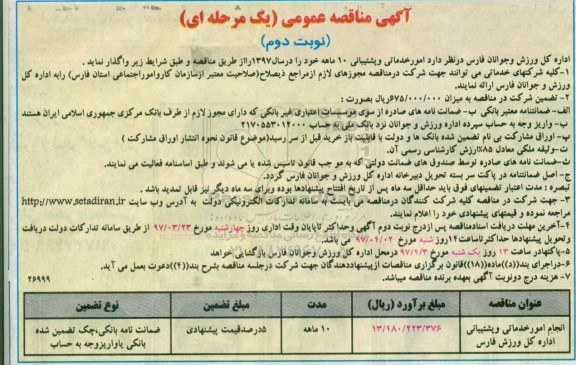 آگهی مناقصه عمومی (یک مرحله ای)
(نوبت دوم)
اداره کل ورزش وجوانان فارس درنظر دارد امورخدماتی وپشتیبانی ۱۰ ماهه خود را درسال۱۳۹۷رااز طریق مناقصه و طبق شرایط زیر واگذار نماید .
۱-کلیه شرکتهای خدماتی می توانند جهت شرکت درمناقصه مجوزهای لازم ازمراجع ذیصلاح(صلاحیت معتبر ازسازمان کارواموراجتماعی استان فارس) رابه اداره کل
ورزش و جوانان فارس ارائه نمایند.
۲- تضمین شرکت در مناقصه به میزان ۶۷۵/۰۰۰/۰۰۰ریال بصورت :
الف-ضمانتنامه معتبربانکی ب-ضمانت نامه های صادره از سوی موسسات اعتباری غیر بانکی که دارای مجوز لازم از طرف بانک مرکزی جمهوری اسلامی ایران هستند
پ- واریز وجه به حساب سپرده اداره ورزش و جوانان نزد بانک ملی به حساب ۲۱۷۰۵۵۳۰۱۲۰۰۰
پ- اوراق مشارکت بی نام تضمین شده بانک ها و دولت با قابلیت باز خرید قبل از سر رسید(موضوع قانون نحوه انتشار اوراق مشارکت )
ت-وثیقه ملکی معادل ۸۵٪ارزش کارشناسی رسمی آن.
ث-ضمانت نامه های صادره توسط صندوق های ضمانت دولتی که به مو جب قانون تاسیس شده یا می شوند و طبق اساسنامه فعالیت می نمایند.
ج- اصل ضمانتنامه در پاکت سر بسته تحویل دبیرخانه اداره کل ورزش و جوانان فارس گردد.
تبصره : مدت اعتبار تضمینهای فوق باید حداقل سه ماه پس از تاریخ افتتاح پیشنهادها بوده وبرای سه ماه دیگر نیز قابل تمدید باشد .
۳- جهت شرکت در مناقصه کلیه شرکت کنندگان درمناقصه می بایست به سامانه تدارکات الکترونیکی دولت به آدرس وب سایت http://www.setadiran.ir
مراجعه نموده و قیمتهای پیشنهادی خود را اعلام نمایند.
۴-آخرین مهلت دریافت اسنادمناقصه پس ازدرج نوبت دوم آگهی وحداکثر تاپایان وقت اداری روز چهارشنبه مورخ ۹۷/۰۳/۲۳ از طریق سامانه تدارکات دولت دریافت
وتحویل پیشنهادها حداکثرتاساعت۱۴روز شنبه مورخ ۹۷/۰۴/۰۲ می باشد.
۵-پاکتهادر ساعت ۱۳ روز یک شنبه مورخ ۹۷/۴/۳ درمحل اداره کل ورزش وجوانان فارس بازگشایی خواهد
۶-دراجرای بند((د))ماده((۱۸))قانون برگزاری مناقصات ازپیشنهاددهندگان جهت شرکت درجلسه مناقصه بشرح بند((۴))دعوت بعمل می آید.
۷- هزینه درج دونوبت آگهی بعهده برنده مناقصه میباشد. ۲۶۹۹۹
عنوان مناقصه مبلغ برآورد (ریال) مدت مبلغ تضمین نوع تضمین
انجام امورخدماتی وپشتیبانی اداره کل ورزش فارس ۱۳/۴۸۰/۲۲۳/۳۷۶ ۱۰ ماهه ۵درصدقیمت پیشنهادی ضمانت نامه بانکی،چک تضمین شده بانکی یاواریزوجه به حساب